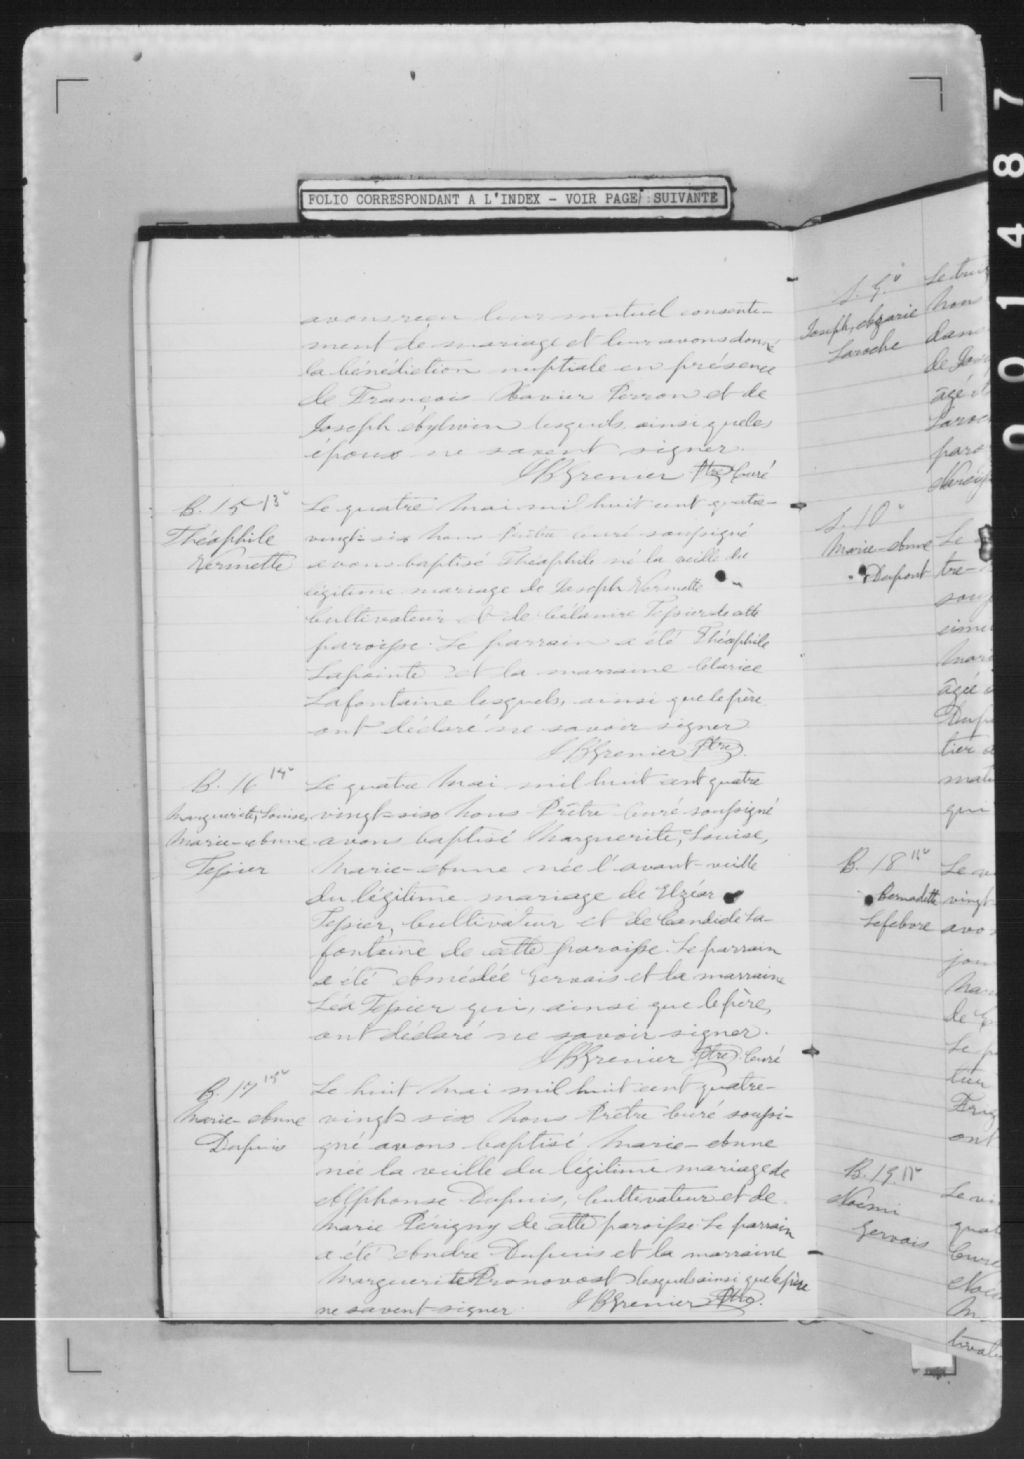 FOLIO CORRESPONDANT A L'INDEX - VOIR PAGE SUIVANTE
001487
avons reçu leur mutuel consente-
ment de mariage et leur avons donné
la bénédiction nuptiale en présence
de François Xavier Perron et de
Joseph lesquels ainsi que les
époux ne savent signer.
JBGrenier Ptre Curé
B. 15
Théophile
Vermette
Le quatre Mai mil huit cent quatre-
vingt-six Nous Prêtre curé soussigné
avons baptisé Théophile né la veille du
légitime mariage de Joseph Vermette
Cultivateur et de Célanire Tessier de cette
paroisse. Le parrain a été Théophile
Lapointe et la marraine Clarice
Lafontaine lesquels, ainsi que le père
ont déclaré ne savoir signer
JBGrenier Ptre
B. 16
Marguerite, Louise,
Marie-Anne
Tessier
Le quatre Mai mil huit cent quatre
vingt-six Nous Prêtre Curé soussigné
avons baptisé Marguerite, Louise,
Marie-Anne née l'avant-veille
du légitime mariage de Elzéar
Tessier, Cultivateur et de Candide La-
fontaine de cette paroisse. Le parrain
a été Amédée Gervais et la marraine
Léa Tessier qui, ainsi que le père,
ont déclaré ne savoir signer.
JBGrenier Ptre Curé
B. 17
Marie-Anne
Dupuis
Le huit Mai mil huit cent quatre-
vingt six Nous Prêtre Curé soussi-
gné avons baptisé Marie-Anne
née la veille du légitime mariage de
Alphonse Dupuis, Cultivateur et de
Marie Périgny de cette paroisse Le parrain
a été André Dupuis et la marraine
Marguerite Pronovost lesquels ainsi que le père
ne savent signer. JBGrenier Ptre.
S. 9
Joseph, Azarie
Laroche
S. 10
Marie-Anne
Dupont
B. 18
Bernadette
Lefebvre
B. 19
Noémi
Gervais